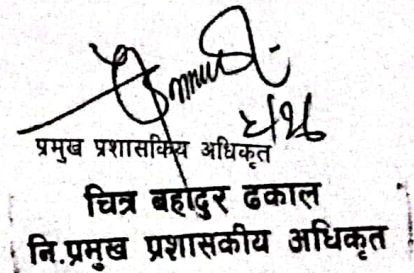 प्रमुख प्रशासकिय अधिकृत
चित्र बहादुर ढकाल
नि.प्रमुख प्रशासकीय अधिकृत